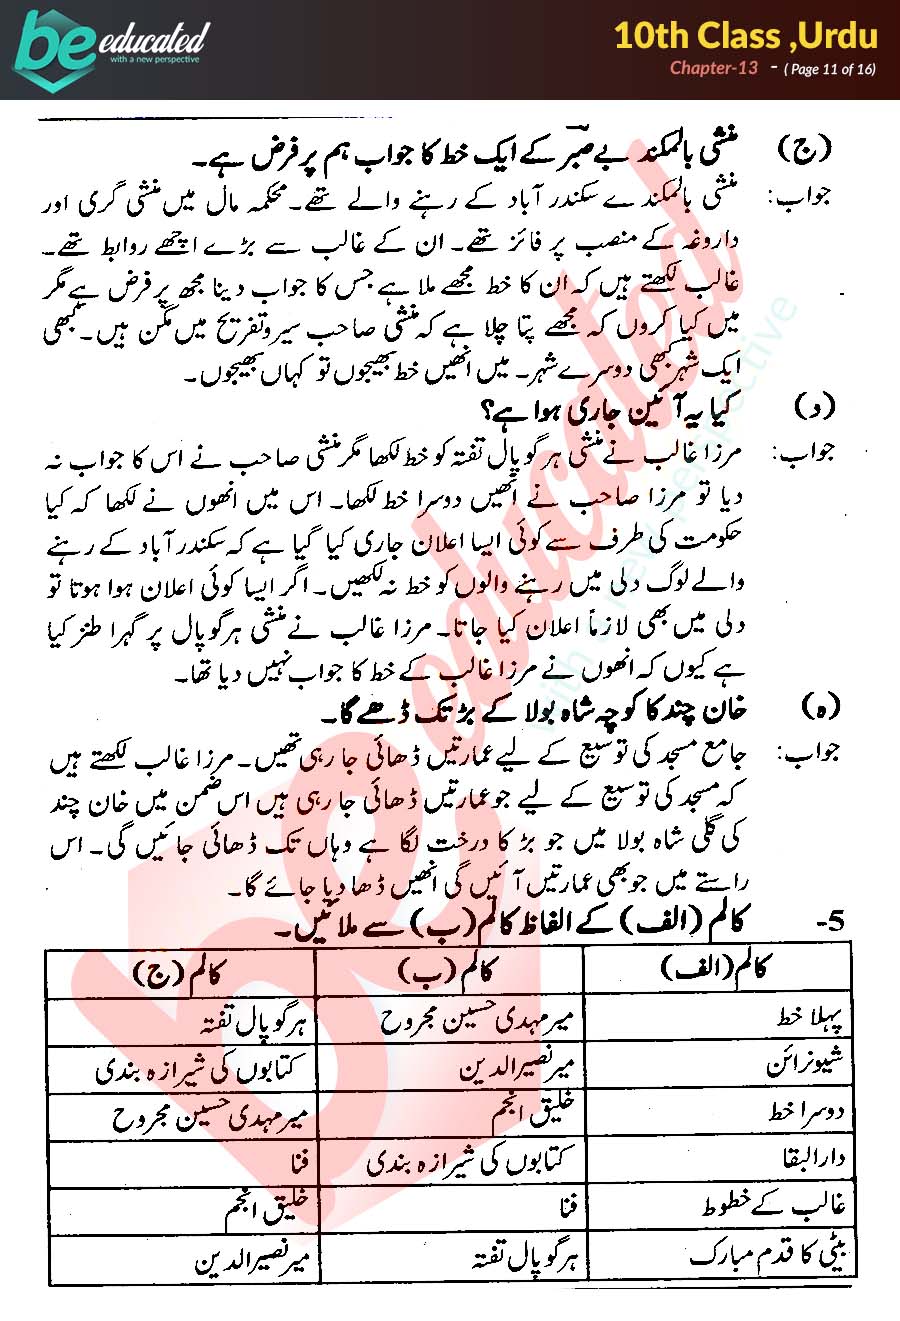 be educated
with a new perspective
10th Class ,Urdu
Chapter-13 - ( Page 11 of 16)
(ج) منشی بالمکند بے صبر کے ایک خط کا جواب ہم پر فرض ہے۔
جواب: منشی بالمکندے سکندر آباد کے رہنے والے تھے۔ محکمہ مال میں منشی گری اور
داروغہ کے منصب پر فائز تھے۔ ان کے غالب سے بڑے اچھے روابط تھے۔
غالب لکھتے ہیں کہ ان کا خط مجھے ملا ہے جس کا جواب دینا مجھ پر فرض ہے مگر
میں کیا کروں کہ مجھے پتا چلا ہے کہ منشی صاحب سیر و تفریح میں مگن ہیں۔ کبھی
ایک شہر کبھی دوسرے شہر۔ میں انھیں خط بھیجوں تو کہاں بھیجوں۔
(د) کیا یہ آئین جاری ہوا ہے؟
جواب: مرزا غالب نے منشی ہر گوپال تفتہ کو خط لکھا مگر منشی صاحب نے اس کا جواب نہ
دیا تو مرزا صاحب نے انھیں دوسرا خط لکھا۔ اس میں انھوں نے لکھا کہ کیا
حکومت کی طرف سے کوئی ایسا اعلان جاری کیا گیا ہے کہ سکندر آباد کے رہنے
والے لوگ دلی میں رہنے والوں کو خط نہ لکھیں۔ اگر ایسا کوئی اعلان ہوا ہوتا تو
دلی میں بھی لازماً اعلان کیا جاتا۔ مرزا غالب نے منشی ہر گوپال پر گہرا طنز کیا
ہے کیوں کہ انھوں نے مرزا غالب کے خط کا جواب نہیں دیا تھا۔
(ہ) خان چند کا کوچہ شاہ بولا کے بڑ تک ڈھے گا۔
جواب: جامع مسجد کی توسیع کے لیے عمارتیں ڈھائی جا رہی تھیں۔ مرزا غالب لکھتے ہیں
کہ مسجد کی توسیع کے لیے جو عمارتیں ڈھائی جا رہی ہیں اس ضمن میں خان چند
کی گلی شاہ بولا میں جو بڑ کا درخت لگا ہے وہاں تک ڈھائی جائیں گی۔ اس
راستے میں جو بھی عمارتیں آئیں گی انھیں ڈھا دیا جائے گا۔
5- کالم (الف) کے الفاظ کالم (ب) سے ملائیں۔
کالم (الف) کالم (ب) کالم (ج)
پہلا خط میر مہدی حسین مجروح ہر گوپال تفتہ
شیونرائن میر نصیر الدین کتابوں کی شیرازہ بندی
دوسرا خط خلیق انجم میر مہدی حسین مجروح
دارالبقا کتابوں کی شیرازہ بندی فنا
غالب کے خطوط فنا خلیق انجم
بیٹی کا قدم مبارک ہر گوپال تفتہ میر نصیر الدین
be educated
with a new perspective